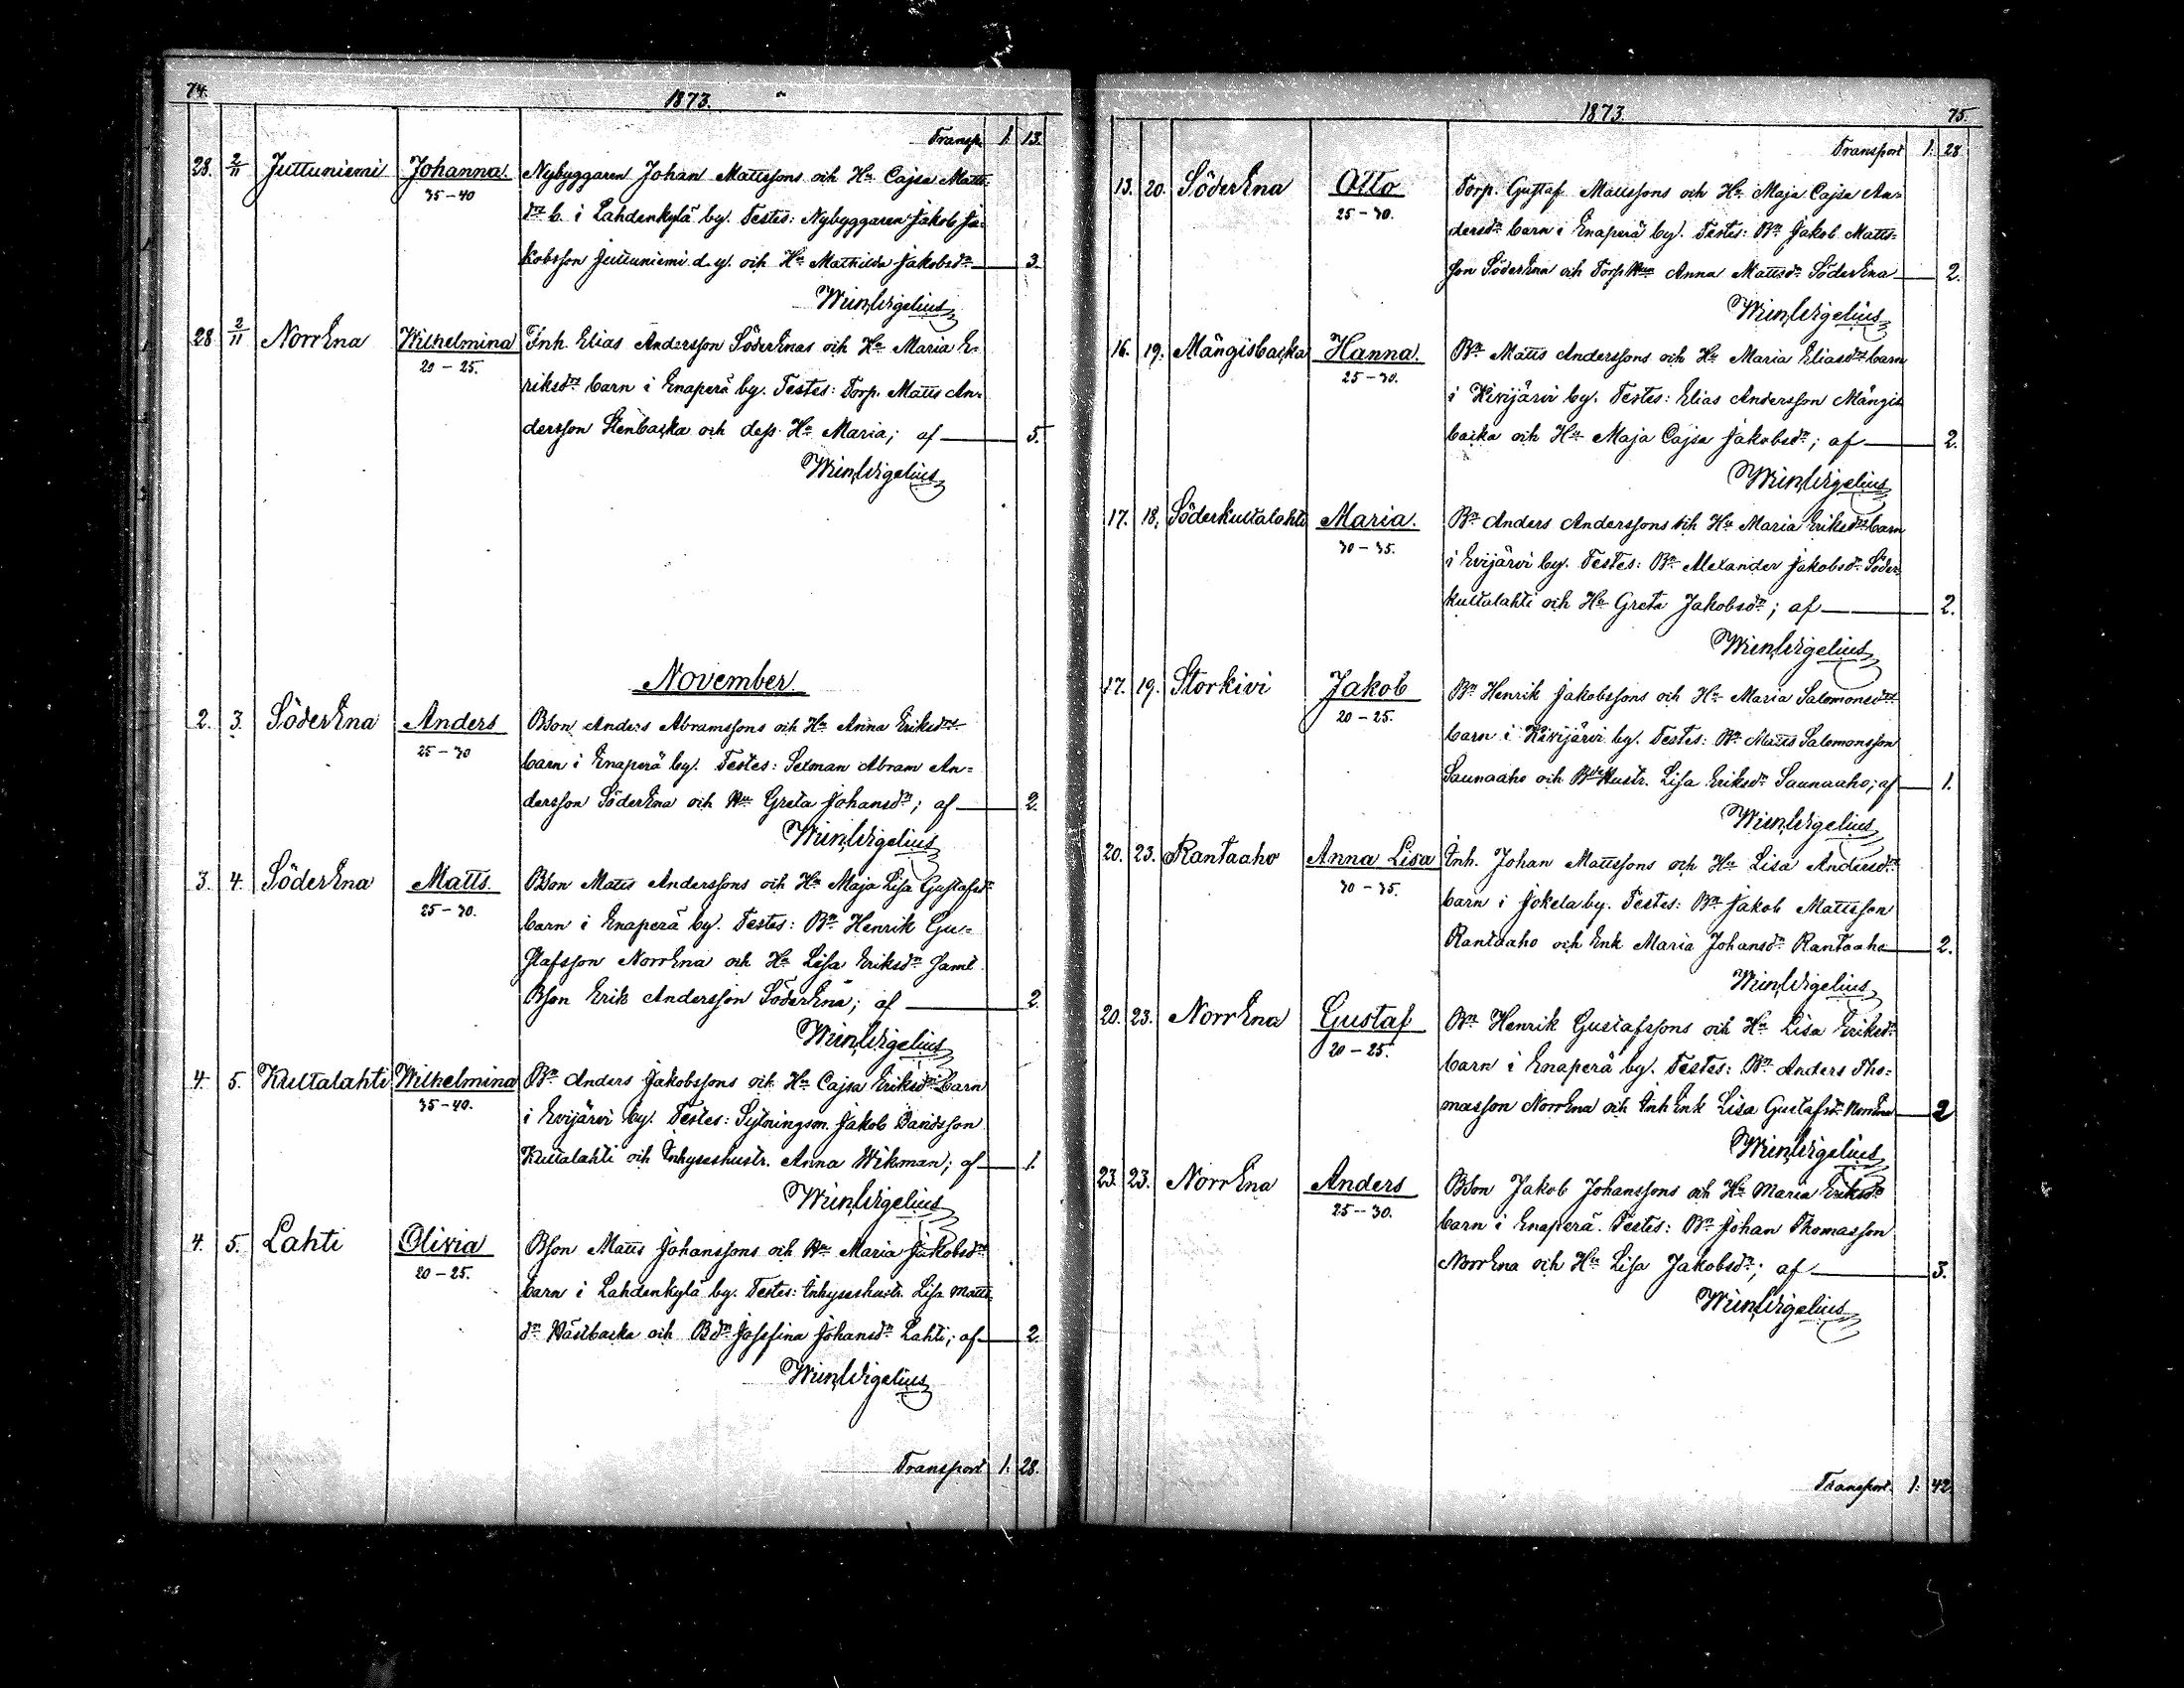 74.
1873.
Transp. 1. 13.
28. 2/11 Juttuniemi Johanna Nybyggaren Johan Mattssons och Hu Cajsa Matts-
35-40
drs b. i Lahdenkylä by. Testes: Nybyggaren Jakob Ja-
kobsson Juttuniemi d.y. och Hu Mathilda Jakobsdr 3.
Wm Wigelius
28 2/11 NorrEna Wilhelmina Inh. Elias Andersson SöderEnas och Hu Maria E-
20-25.
riksdrs barn i Enaperä by. Testes: Torp. Matts An-
dersson Stenbacka och dess Hu Maria; af 5.
Wm Wigelius
November
2. 3. SöderEna Anders Bson Anders Abramssons och Hu Anna Eriksdrs
25-30
barn i Enaperä by. Testes: Sexman Abram An-
dersson SöderEna och Hu Greta Johansdr; af 2.
Wm Wigelius
3. 4. SöderEna Matts. Bson Matts Anderssons och Hu Maja Lisa Gustafsdr
25-30.
barn i Enaperä by. Testes: Bn Henrik Gu-
stafsson NorrEna och Hu Lisa Eriksdr samt
Bson Erik Andersson SöderEna; af 2.
Wm Wigelius
4. 5. Kultalahti Wilhelmina Bn Anders Jakobssons och Hu Cajsa Eriksdrs barn
35-40.
i Evijärvi by. Testes: Sytningsm. Jakob Davidsson
Kultalahti och Inhyseshustr. Anna Wikman; af 1.
Wm Wigelius
4. 5. Lahti Olivia Bson Matts Johanssons och Hu Maria Jakobsdrs
20-25.
barn i Lahdenkylä by. Testes: Inhyseshustr. Lisa Matts-
dr Wästbacka och Bdr Josefina Johansdr Lahti; af 2.
Wm Wigelius
Transport 1. 28.
1873. 75.
Transport 1. 28
13. 20. SöderEna Otto Torp. Gustaf Mattssons och Hu Maja Cajsa An-
25-30.
dersdrs barn i Enaperä by. Testes: Bn Jakob Matts-
son SöderEna och Torp Hun Anna Mattsdr SöderEna 2.
Wm Wigelius
16. 19. Mängisbacka Hanna. Bn Matts Anderssons och Hu Maria Eliasdrs barn
25-30.
i Kivijärvi by. Testes: Elias Andersson Mängis
backa och Hu Maja Cajsa Jakobsdr; af 2.
Wm Wigelius
17. 18. Söderkultalahti Maria. Bn Anders Anderssons och Hu Maria Eriksdrs barn
30-35.
i Evijärvi by. Testes: Bn Alexander Jakobsdr Söder-
kultalahti och Hu Greta Jakobsdr; af 2.
Wm Wigelius
17. 19. Storkivi Jakob Bn Henrik Jakobssons och Hu Maria Salomonsdrs
20-25.
barn i Kivijärvi by. Testes: Bn Matts Salomonsson
Saunaaho och Bde Hustr. Lisa Eriksdr Saunaaho; af 1.
Wm Wigelius
20. 23. Rantaaho Anna Lisa Inh. Johan Mattssons och Hu Lisa Andersdrs
30-35.
barn i Jokela by. Testes: Bn Jakob Mattsson
Rantaaho och Enk Maria Johansdr Rantaaho 2.
Wm Wigelius
20. 23. NorrEna Gustaf Bn Henrik Gustafssons och Hu Lisa Eriksdrs
20-25.
barn i Enaperä by. Testes: Bn Anders Tho-
masson NorrEna och Inh Enk Lisa Gustafsdr NorrEna 2
Wm Wigelius
23. 23. NorrEna Anders Bson Jakob Johanssons och Hu Maria Eriksdrs
25-30.
barn i Enaperä. Testes: Bn Johan Thomasson
NorrEna och Hu Lisa Jakobsdr; af 3.
Wm Wigelius
Transport. 1. 42.